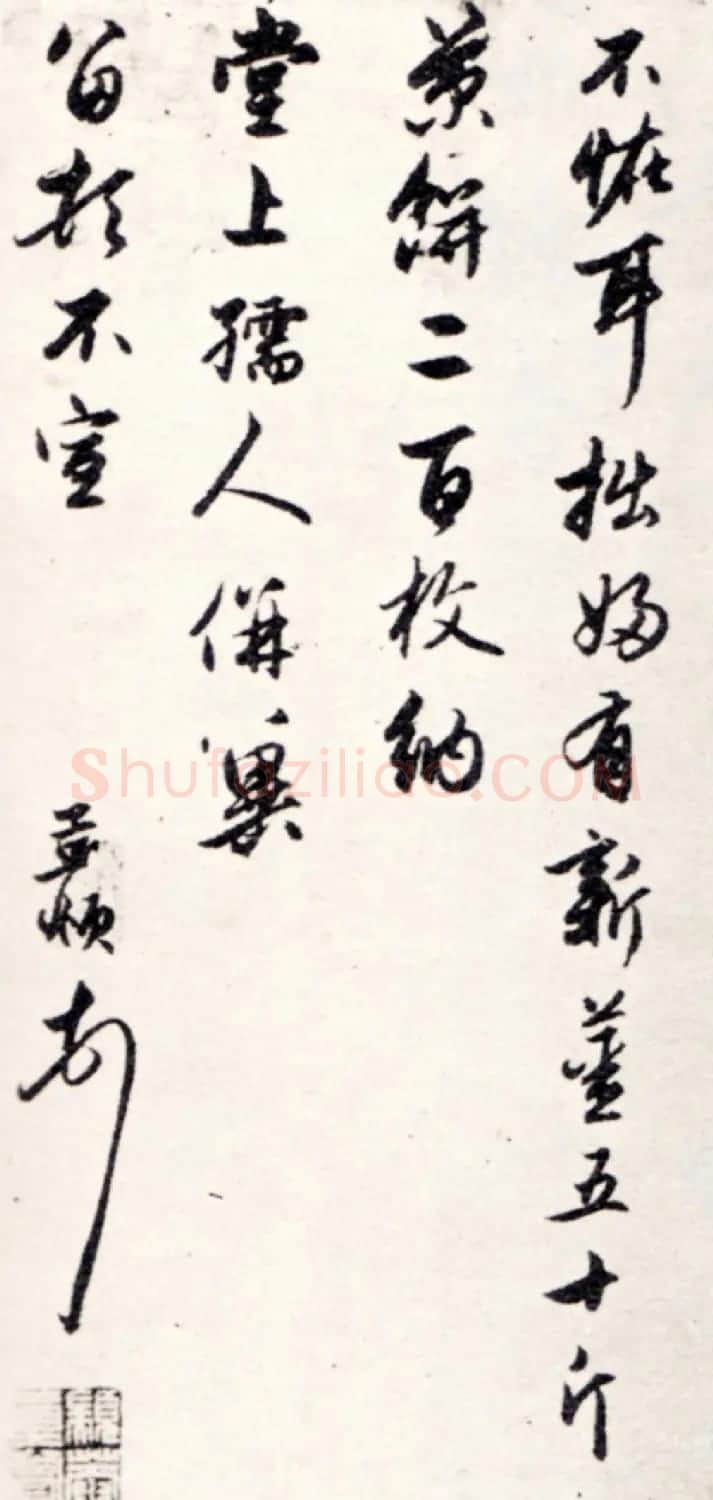 不怪耳拙婦有新薑五十斤
煎餅二百枚納
堂上孺人併冀
留頓不宣
孟頫
Shufaziliao.COM